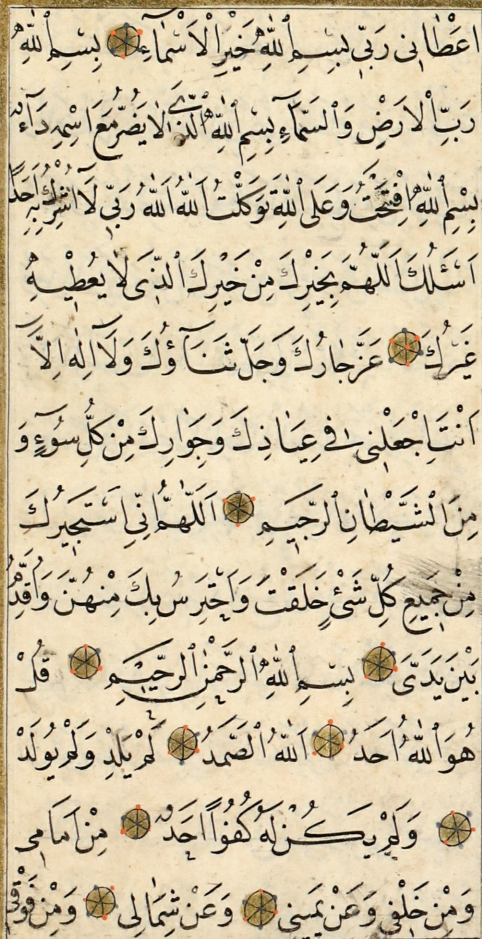 اَعْطَانِى رَبِّى بِسْمِ ٱللّٰهِ خَيْرِ الْاَسْمَاءِ بِسْمِ ٱللّٰهِ
رَبِّ الْاَرْضِ وَالسَّمَاءِ بِسْمِ ٱللّٰهِ الَّذِى لَا يَضُرُّ مَعَ اسْمِهِ دَاءٌ
بِسْمِ ٱللّٰهِ افْتَتَحْتُ وَعَلَى ٱللّٰهِ تَوَكَّلْتُ اَللّٰهُ اَللّٰهُ رَبِّى لَا اُشْرِكُ بِهِ اَحَدًا
اَسْئَلُكَ اَللّٰهُمَّ بِخَيْرِكَ مِنْ خَيْرِكَ الَّذِى لَا يُعْطِيهِ
غَيْرُكَ عَزَّ جَارُكَ وَجَلَّ ثَنَاؤُكَ وَلَا اِلٰهَ اِلَّا
اَنْتَ اجْعَلْنِى فِى عِيَاذِكَ وَجَوَارِكَ مِنْ كُلِّ سُوءٍ وَ
مِنَ الشَّيْطَانِ الرَّجِيمِ اَللّٰهُمَّ اِنِّى اَسْتَجِيرُكَ
مِنْ جَمِيعِ كُلِّ شَىْءٍ خَلَقْتَ وَاَحْتَرِسُ بِكَ مِنْهُنَّ وَاُقَدِّمُ
بَيْنَ يَدَىَّ بِسْمِ ٱللّٰهِ الرَّحْمٰنِ الرَّحِيمِ قُلْ
هُوَ ٱللّٰهُ اَحَدٌ اَللّٰهُ الصَّمَدُ لَمْ يَلِدْ وَلَمْ يُولَدْ
وَلَمْ يَكُنْ لَهُ كُفُوًا اَحَدٌ مِنْ اَمَامِى
وَمِنْ خَلْفِى وَعَنْ يَمِينِى وَعَنْ شِمَالِى وَمِنْ فَوْقِى